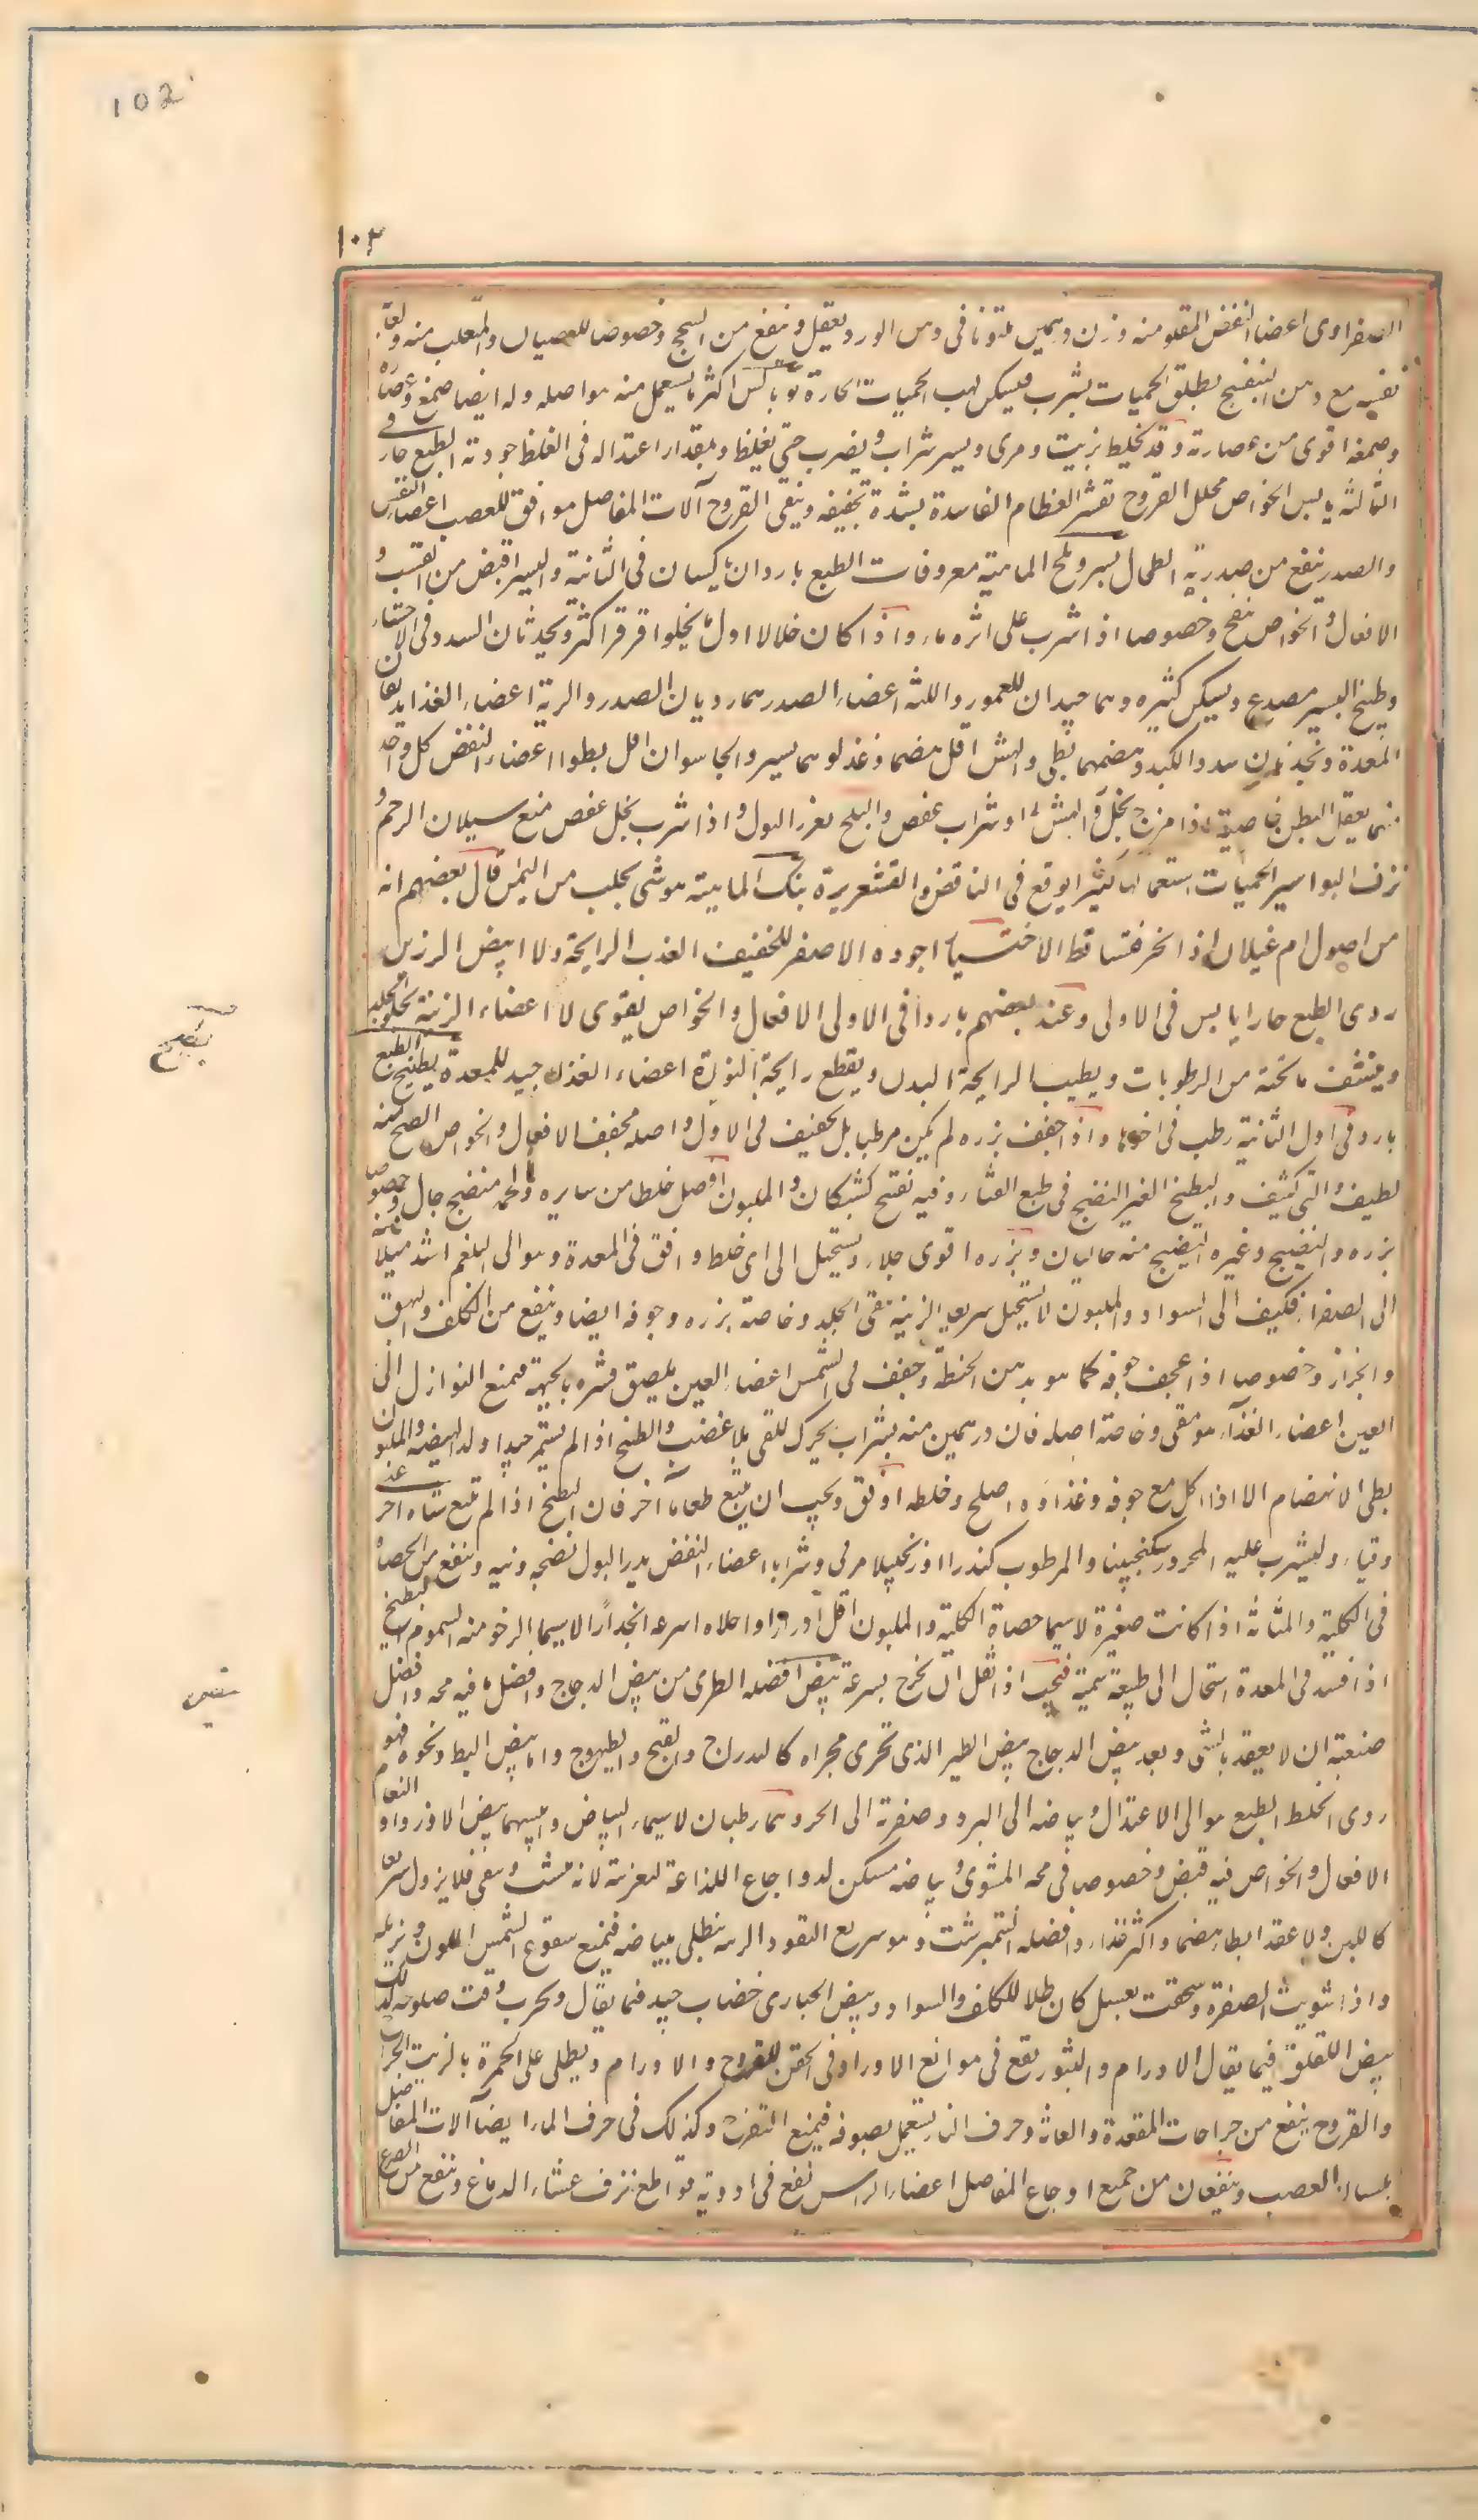 102
١٠٢
الصفراوى اعضا النفض المقلو منه وزن درهمين ملتوتا فى دهن الورد يعقل وينفع من السحج وخصوصا للصبيان والمتعلب منه ولعا
نفسه مع دهن البنفسج يطلق الحميات يشرب فيسكن لهب الحميات الحارة اكثر ما يستعمل منه مواصله وله ايضا صمغ وعصاره
وصمغه اقوى من عصارته وقد يخلط بزيت ومرى ويسير شراب ويضرب حتى يغلظ وبمقدار اعتداله فى الغلظ جودته الطبع حار فى
الثالثه يابس الخواص محلل القروح تقشر العظام الفاسدة بشدة تجفيفه وينقى القروح آلات المفاصل موافق للعصب اعضاء النفس
والصدر ينفع من صدرية الطحال بسر وبلح الماهية معروفات الطبع باردان يابسان فى الثانية والبسر اقبض من القسب و
الافعال والخواص نفخ وخصوصا اذا شرب على اثره ماء واذا كان خلالا اول ما يحلوا قرقر اكثر ويحدثان السدد فى الاحشاء
وطبيخ البسر مصدع ويسكر كثيره وهما جيدان للعمور واللثه اعضاء الصدر هما رديان الصدر والرية اعضاء الغذا يدبغان
المعدة ويحدثان سدد الكبد وهضمهما بطى والهش اقل هضما وغذاوهما يسير والجاسوان اقل بطوا اعضاء النفض كل واحد
منهما يعقل البطن خاصية اذا مزج بخل والهش او شراب عفص والبلح يغزر البول واذا شرب بخل عفص منع سيلان الرحم و
نزف البواسير الحميات استعمالها كثيرا يوقع فى النافض والقشعريرة بنك الماهية هو شى يجلب من اليمن قال بعضهم انه
من اصول ام غيلان اذا نخر فتساقط الاختيار اجوده الاصفر الخفيف العذب الرايحة ولا ابيض الرزين
ردى الطبع حار يابس فى الاولى وعند بعضهم بارد فى الاولى الافعال والخواص يقوى الاعضاء الزينة تحلوا الجلد
وينشف ما تحته من الرطوبات ويطيب الرايحة البدن ويقطع رايحة النورة اعضاء الغذا جيد للمعدة بطيخ الطبع
بارد فى اول الثانية رطب فى اخرها واذا جفف بزره لم يكن مرطبا بل يجفف فى الاول واصله مجفف الافعال والخواص النضج منه
لطيف والنى كثيف والبطيخ الغير النضيج فى طبع القثاء وفيه تفتح كيف كان والمليون افضل خلطا من سايره ولحمه منضج جال وخصوصا
بزره والنضيج وغيره النضيج منه جاليان وبزره اقوى جلاء ويستحيل الى اى خلط وافق فى المعدة وهو الى البلغم اشد ميلا منه
الى الصفرا فكيف الى السواد والمليون لا يستحيل سريعا الزينة ينقى الجلد وخاصة بزره وجوفه ايضا وينفع من الكلف والبهق
والحزاز وخصوصا اذا عجن جوفه كما هو بدقيق الحنطة وجفف فى الشمس اعضاء العين يلصق قشره بالجبهة فيمنع النوازل الى
العين اعضاء الغذآء هو مقى وخاصة اصله فان درهمين منه بشراب يحرك القى بلا عنف والبطيخ اذا لم يستمر جيدا ولد الهيضه والمليون
بطى الانهضام الا اذا اكل مع جوفه وغذاوه اصلح وخلطه اوفق ويجب ان يتبع طعاما آخر فان البطيخ اذا لم يتبع شيئا اخر غثى
وقياء وليشرب عليه المحرور سكنجبينا والمرطوب كندرا او زنجبيلا مربى وشرابا اعضاء النفض يدر البول نضجه ونيه وينفع من الحصاة
فى الكلية والمثانة اذا كانت صغيرة لاسيما حصاة الكلية والمليون اقل ادرارا واحلاه اسرعه انحدارا لاسيما الرخو منه السموم البطيخ
اذا فسد فى المعدة استحال الى طبيعة سمية فيجب اذا ثقل ان يخرج بسرعة بيض افضله الطرى من بيض الدجاج وافضل ما فيه محه وافضل
صنعته ان لا يعقد بالشى وبعد بيض الدجاج بيض الطير الذى تجرى مجراه كالدراج والقبج والطيهوج واما بيض البط ونحوه فهو
ردى الخلط الطبع هو الى الاعتدال وبياضه الى البرد وصفرته الى الحر وهما رطبان لاسيما البياض وايبسهما بيض الاوز والنعام
الافعال والخواص فيه قبض وخصوصا فى محه المشوى وبياضه مسكن لاوجاع اللذاعة لتغريته لانه ينشب ويبقى فلا يزول سريعا
كاللبن والمنعقد ابطا هضما واكثر غذاء وافضله النيمبرشت وهو سريع النفوذ الزينة يطلى بياضه فيمنع سفوع الشمس اللون ويزيله
واذا شويت الصفرة وسحقت بعسل كان طلا للكلف والسواد وبيض الحبارى خضاب جيد فيما يقال ويجرب وقت صلوحه لذلك
بيض اللقلق فيما يقال الاورام والبثور يقع فى موانع الاورام وفى الحقن للقروح والاورام ويطلى على الحمرة بالزيت الجراح
والقروح ينفع من جراحات المقعدة والعانة وحرق النار يستعمل بصوفه فيمنع التقرح وكذلك فى حرق الماء ايضا آلات المفاصل
يلينان العصب وينفعان من جميع اوجاع المفاصل اعضاء الراس نفع فى ادوية قواطع نزف غشاء الدماغ وينفع من الصدع
بطيخ
بيض